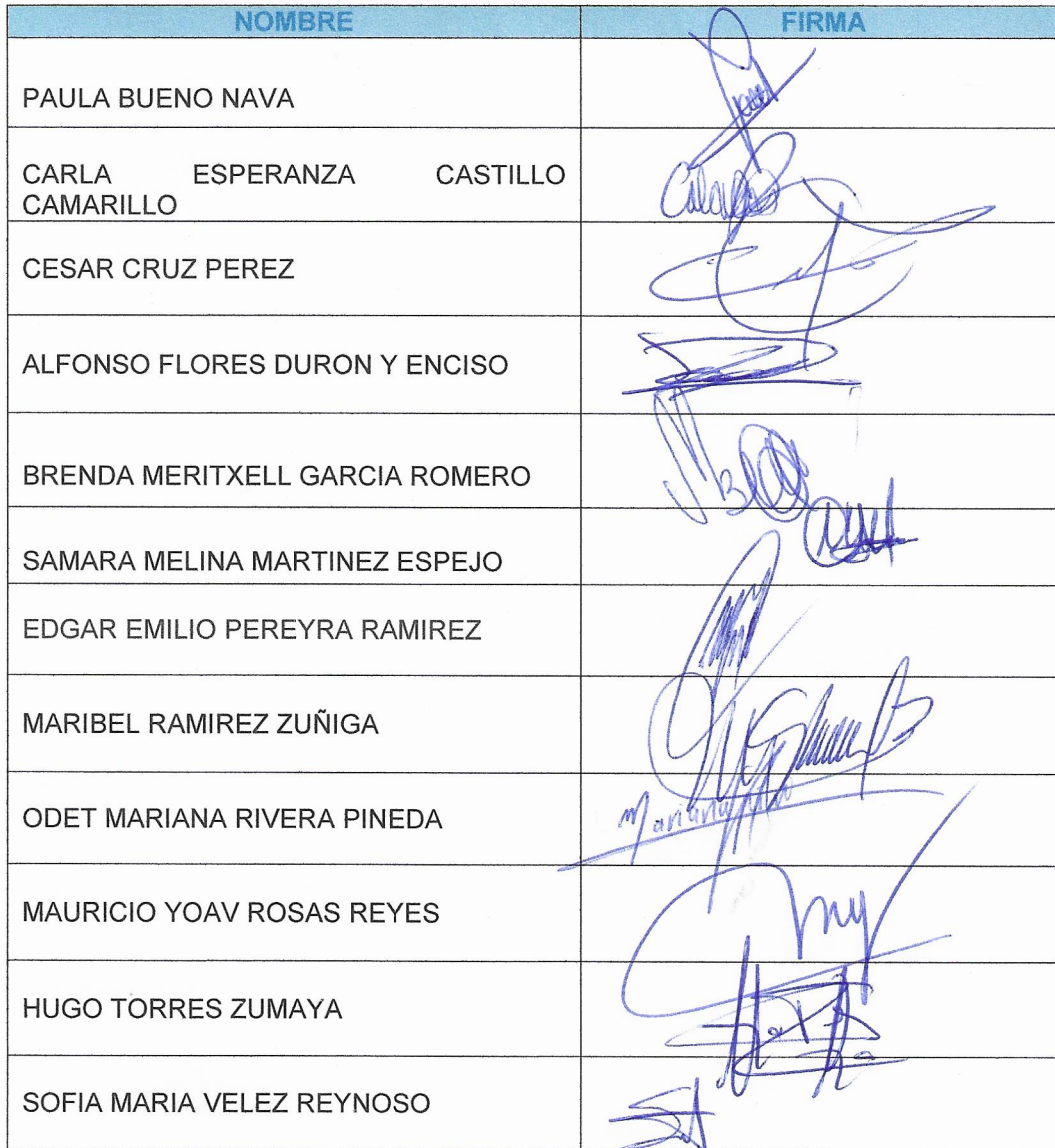 NOMBRE FIRMA
PAULA BUENO NAVA
CARLA ESPERANZA CASTILLO
CAMARILLO
CESAR CRUZ PEREZ
ALFONSO FLORES DURON Y ENCISO
BRENDA MERITXELL GARCIA ROMERO
SAMARA MELINA MARTINEZ ESPEJO
EDGAR EMILIO PEREYRA RAMIREZ
MARIBEL RAMIREZ ZUÑIGA
ODET MARIANA RIVERA PINEDA Mariana
MAURICIO YOAV ROSAS REYES
HUGO TORRES ZUMAYA
SOFIA MARIA VELEZ REYNOSO